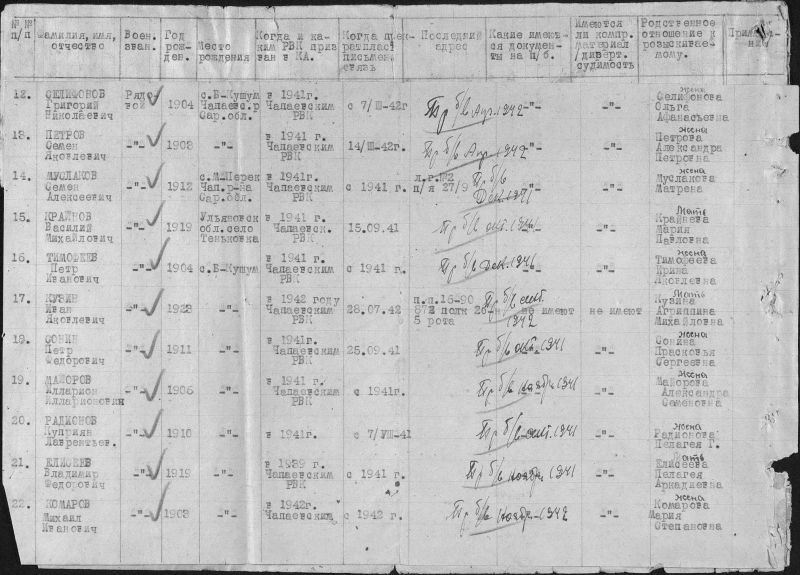 №№ п/п Фамилия, имя, отчество Воен. зван. Год рож- ден. Место рождения Когда и ка- ким РВК приз ван в КА. Когда прек- ратилась письмен. связь Последний адрес Какие имеют- ся докумен- ты на Ц/б. Имеются ли компр. материал /диверт. судимость Родственное отношение к розыскиваеᴍому. 
12. СЕЛИФОНОВ Рядо в 1941г. жена
Григорий вой 1904 с.Б-Кушум Чапаевским с 7/Ш-42г Пр б/в Апр. 1942 -"- -"- Селифонова
Николаевич Чапаевск.р РВК Ольга
Сар.обл. Афанасьевна
13. ПЕТРОВ в 1941 г. жена
Семен -"- 1903 -"- Чапаевским 14/Ш-42г. Пр б/в Апр 1942 -"- Петрова
Яковлевич РВК Александра
Петровна
14. МУСЛАКОВ с.М-Перек в 1941г. л.г.№2 Пр б/в жена
Семен -"- 1912 Чап.р-ка Чапаевским с 1941 г. п/я 27/9 Дек. 1941 -"- Муслакова
Алексеевич Сар.обл. РВК Матрена
15. КРАЙНОВ Ульяновск в 1941 г. Мать
Василий -"- 1919 обл.село Чапаевск. 15.09.41 Пр б/в окт. 1941 -"- Крайнева
Михайлович Теньковка РВК Мария
Павловна
16. ТИМОФЕЕВ в 1941 г. жена
Петр -"- 1904 с.Б-Кушум Чапаевским с 1941 г. Пр б/в Дек. 1941 -"- Тимофеева
Иванович РВК Ирина
Яковлевна
17. КУЗИН в 1942 году п.п.16-90 Пр б/в окт. Мать
Иван -"- 1923 -"- Чапаевским 28.07.42 872 полк 26-н не имеют не имеют Кузина
Яковлевич РВК 5 рота 1942 Агриппина
Михайловна
18. СОНИН в 1941 г. жена
Петр -"- 1911 -"- Чапаевским 25.09.41 Пр б/в окт. 1941 -"- Сонина
Федорович РВК Прасковья
Сергеевна
19. МАЙОРОВ в 1941 г. жена
Илларион -"- 1906 -"- Чапаевским с 1941г. Пр б/в ноябрь 1941 -"- Майорова
Илларионович РВК Александра
Семеновна
20. РАДИОНОВ жена
Куприян -"- 1910 -"- в 1941г. с 7/УШ-41 Пр б/в окт. 1941 -"- Радионова
Лаврентьев. Пелагея Г.
21. ЕЛИСЕЕВ в 1939 г. Мать
Владимир -"- 1919 -"- Чапаевским с 1941 г. Пр б/в ноябрь 1941 -"- Елисеева
Федорович РВК Пелагея
Аркадиевна
22. КОМАРОВ в 1942г. жена
Михаил -"- 1903 -"- Чапаевским с 1942 г. Пр б/в ноябрь 1942 -"- Комарова
Иванович Мария
Степановна